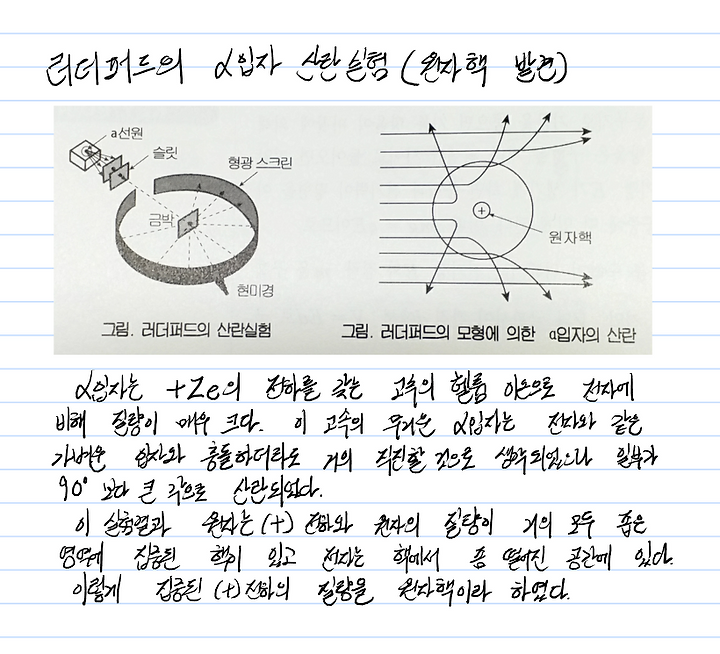 러더퍼드의 α입자 산란실험 (원자핵 발견)
a선원
슬릿
형광 스크린
금박
현미경
그림. 러더퍼드의 산란실험
+
원자핵
그림. 러더퍼드의 모형에 의한 α입자의 산란
α입자는 +2e의 전하를 갖는 고속의 헬륨 이온으로 전자에
비해 질량이 매우 크다. 이 고속의 무거운 α입자는 전자와 같은
가벼운 입자와 충돌하더라도 거의 직진할 것으로 생각되었으나 일부가
90° 보다 큰 각으로 산란되었다.
이 실험결과 원자는 (+)전하와 원자의 질량이 거의 모두 좁은
영역에 집중된 핵이 있고 전자는 핵에서 좀 떨어진 공간에 있다.
이렇게 집중된 (+)전하의 질량을 원자핵이라 하였다.